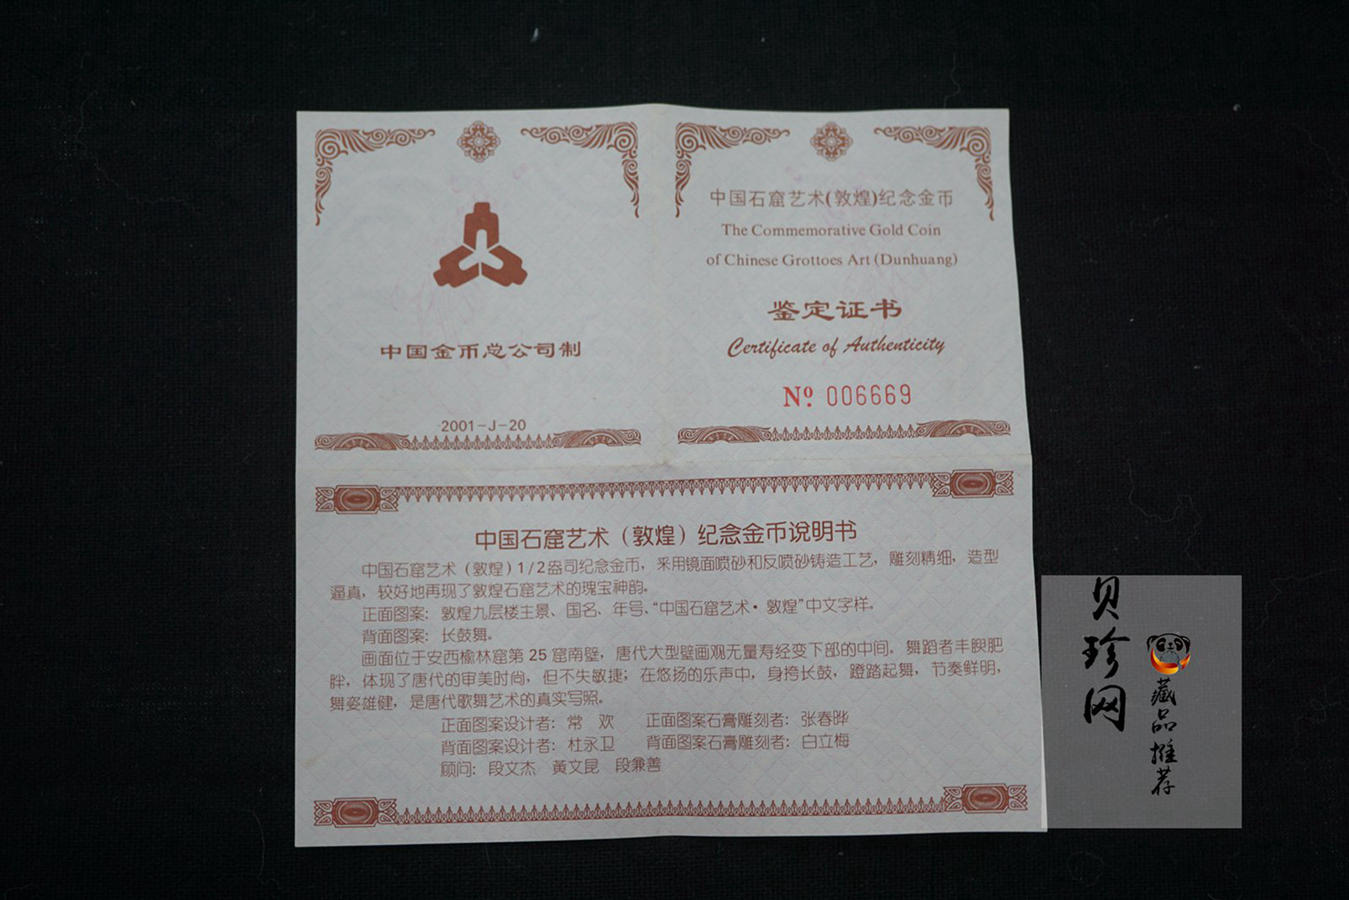 中国金币总公司制
2001-J-20
中国石窟艺术(敦煌)纪念金币
The Commemorative Gold Coin
of Chinese Grottoes Art (Dunhuang)
鉴定证书
Certificate of Authenticity
Nº 006669
中国石窟艺术（敦煌）纪念金币说明书
中国石窟艺术（敦煌）1/2盎司纪念金币，采用镜面喷砂和反喷砂铸造工艺，雕刻精细，造型
逼真，较好地再现了敦煌石窟艺术的瑰宝神韵。
正面图案：敦煌九层楼主景、国名、年号、“中国石窟艺术·敦煌”中文字样。
背面图案：长鼓舞。
画面位于安西榆林窟第 25 窟南壁，唐代大型壁画观无量寿经变下部的中间，舞蹈者丰腴肥
胖，体现了唐代的审美时尚，但不失敏捷；在悠扬的乐声中，身挎长鼓，蹬踏起舞，节奏鲜明，
舞姿雄健，是唐代歌舞艺术的真实写照。
正面图案设计者：常 欢 正面图案石膏雕刻者：张春晔
背面图案设计者：杜永卫 背面图案石膏雕刻者：白立梅
顾问：段文杰 黄文昆 段兼善
贝珍网
藏品推荐